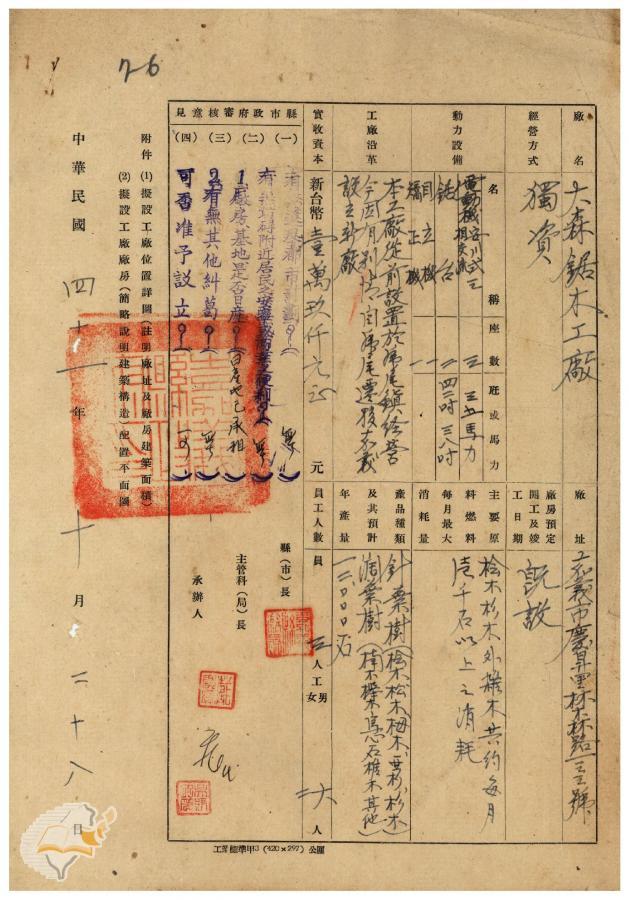 76
廠名
大森鋸木工廠
廠址
嘉義市慶昇里林森路一三三號
經營方式
獨資
廠房預定開工及竣工日期
既設
動力設備
名稱
座數
瓩或馬力
電動機安川式三相交流
三
三五馬力
鋸台
二
四二吋三八吋
目立機
一
矯正機
一
主要原料燃料每月最大消耗量
桧木杉木外雜木共約每月
壹千石以上之消耗
工廠沿革
本工廠從前設置於虎尾鎮經營
今因有利由虎尾遷移嘉義
設立新廠
產品種類及其預計年產量
針葉樹(桧木松木栂木亜杉杉木)
濶葉樹(楠木櫸木烏心石楮木其他)
一二〇〇〇石
實收資本
新台幣壹萬玖仟元正
元
員工人數
員
三
人
工
男
六
女
二
人
縣市政府審核意見
(一)
(二)
(三)
(四)
有無妨碍附近居民之安寧
1廠房基地是否自產
自產也已承租
2有無其他糾葛
無
可否准予設立
可
縣(市)長
主管科(局)長
承辦人
附件(1)擬設工廠位置詳圖(註明廠址及廠房建築面積)
(2)擬設工廠廠房(簡略說明建築構造)配置平面圖
中華民國四十一年十月二十八日
工業標準甲3(420×297)公厘